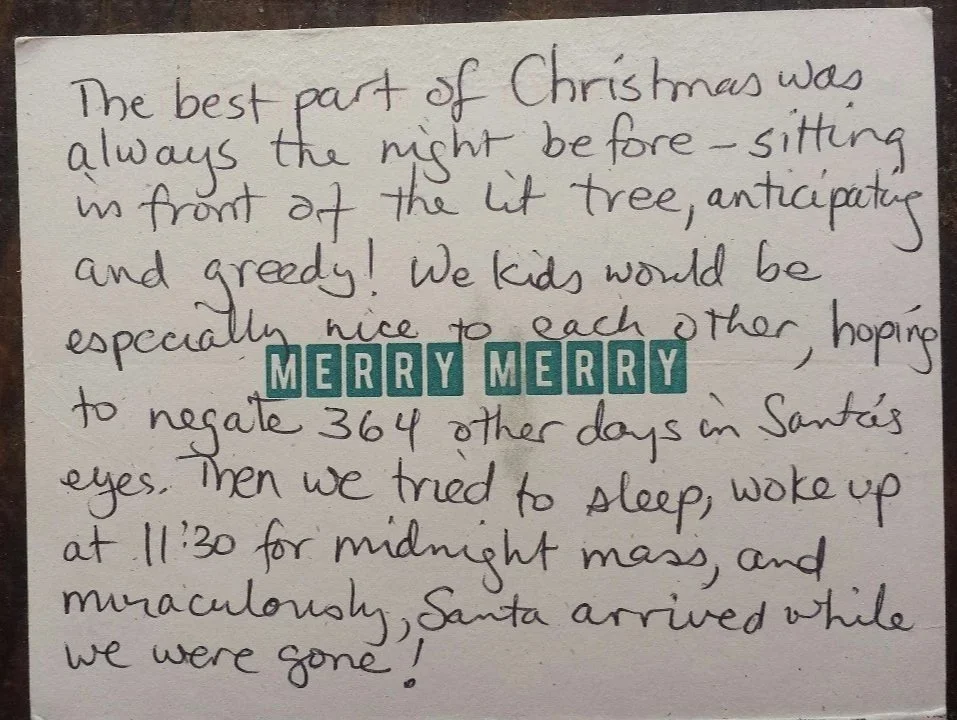 The best part of Christmas was
always the night before – sitting
in front of the lit tree, anticipating
and greedy! We kids would be
especially nice to each other, hoping
MERRY MERRY
to negate 364 other days in Santa's
eyes. Then we tried to sleep, woke up
at 11:30 for midnight mass, and
miraculously, Santa arrived while
we were gone!